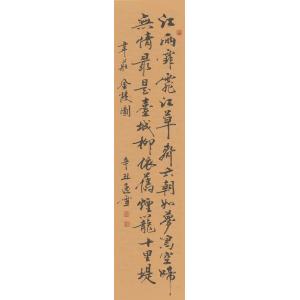 江雨霏霏江草齊六朝如夢鳥空啼
無情最是臺城柳依舊煙籠十里堤
韋莊金陵圖
辛丑